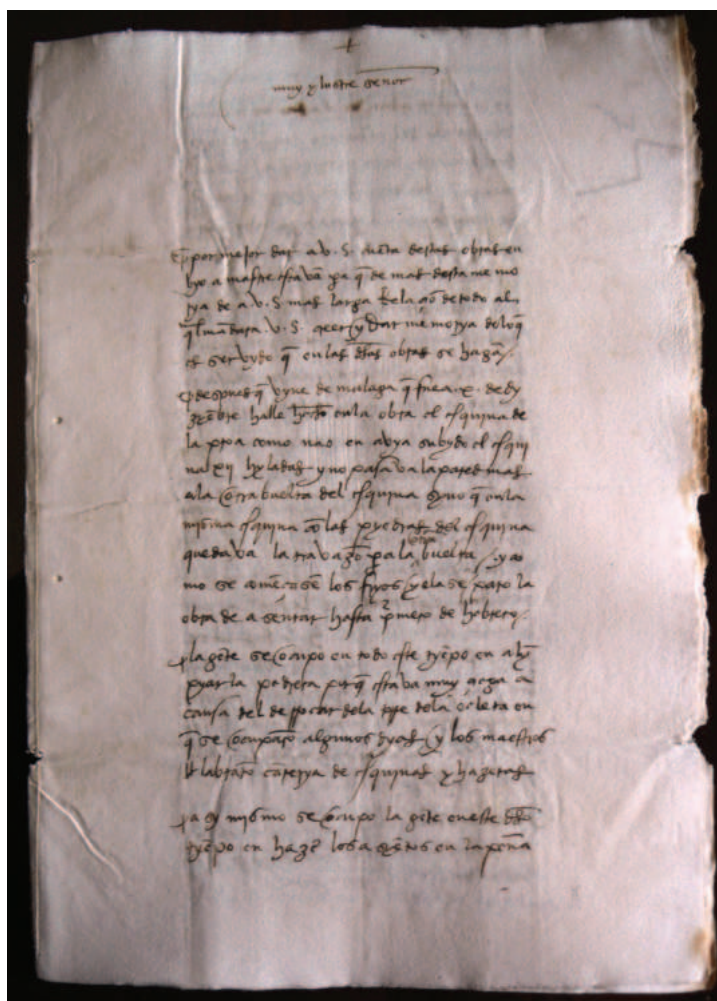 +
muy ylustre señor
por mejor dar a v. s. cuēta destas obras en
byo a maestre estevā pa q̄ de mas desta memo
rya de a v. s. mas larga Relaçō de todo al
q̄l mandara v. s. creer y Dar memorya de lo q̄
es servydo q̄ en las dhas obras se hagā
despues q̄ vyne de malaga q̄ fue a .x. de dy
zyēbre halle hecho en la obra el esquina de
la proa como nao en avya subydo el esqui
na xii hyladas y no pasava la pared mas
a la cōtra buelta del esquina syno q̄ en la
misma esquina cō las pyedras del esquina
quedava la travazō pa la otra buelta y co
mo se comēçasē los fryos y elase paro la
obra de asentar hasta prmero de hebrero
la gēte se ocupo en todo este tyēpo en alī
pyar la pedrera porq̄ estava muy çega a
causa del de la pte de la en
q̄ se ocuparō algunos dyas y los maestros
labrarō cāterya de esquinas y hazeras
asy mismo se ocupo la gēte en este dho
tyēpo en hazer los asyētos en la peña